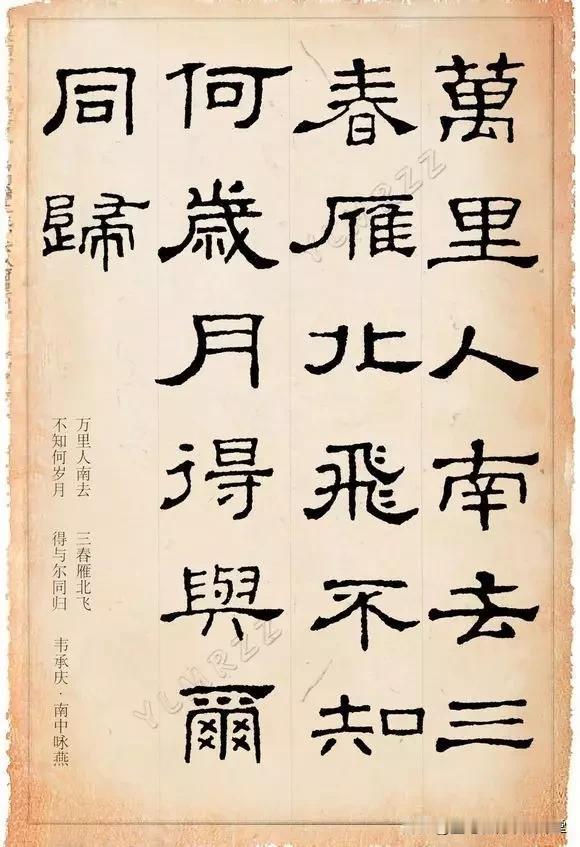 萬里人南去三
春雁北飛不知
何歲月得與爾
同歸
万里人南去 三春雁北飞
不知何岁月 得与尔同归
韦承庆·南中咏燕
YLMRZZ
YLMRZZ